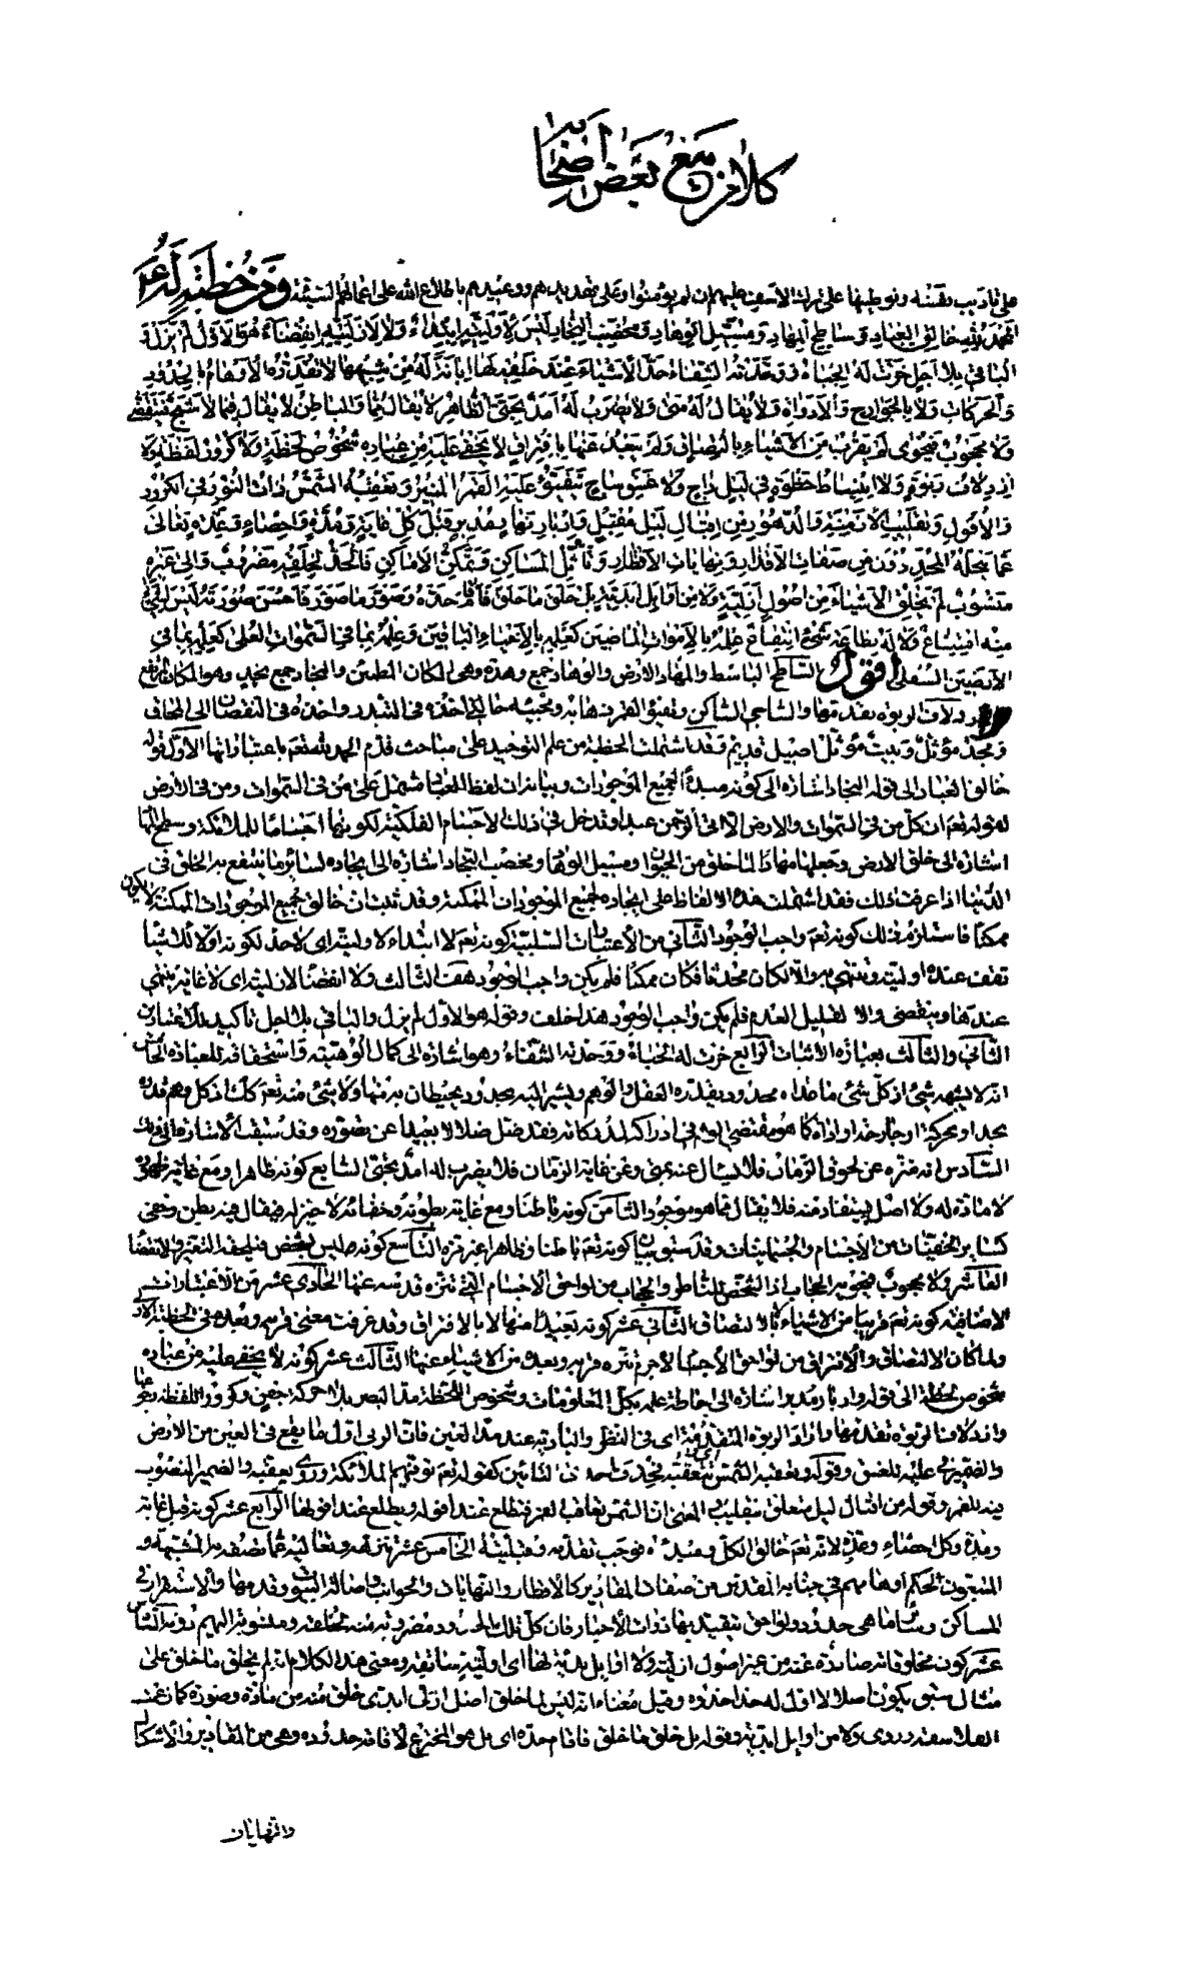 كلامه مع بعض اصحابه
على تاديب نفسه وتوطينها على ترك الاسف عليهم ان لم يؤمنوا وعلى تهديدهم ووعيدهم باطلاع الله على اعمالهم السيئة ومن خطبة له ع
الحمد لله خالق العباد وساطح المهاد ومسيل الوهاد ومخصب النجاد ليس لاوليته ابتداء ولا لازليته انقضاء هو الاول لم يزل و
الباقي بلا اجل خرت له الجباه ووحدته الشفاه حد الاشياء عند خلقه لها ابانة له من شبهها لا تقدره الاوهام بالحدود
والحركات ولا بالجوارح والادوات ولا يقال له متى ولا يضرب له امد بحتى الظاهر لا يقال مما والباطن لا يقال فيما لا شبح فيتقضى
ولا محجوب فيحوى لم يقرب من الاشياء بالتصاق ولم يبعد عنها بافتراق لا يخفى عليه من عباده شخوص لحظة ولا كرور لفظة ولا
ازدلاف ربوة ولا انبساط خطوة في ليل داج ولا غسق ساج يتفيؤ عليه القمر المنير وتعقبه الشمس ذات النور في الكرور
والافول وتقليب الازمنة والدهور من اقبال ليل مقبل وادبار نهار مدبر قبل كل غاية ومدة واحصاء وعدة تعالى
عما ينحله المحددون من صفات الاقدار ونهايات الاقطار وتاثل المساكن وتمكن الاماكن فالحد لخلقه مضروب والى غيره
منسوب لم يخلق الاشياء من اصول ازلية ولا من اوائل ابدية بل خلق ما خلق فاقام حده وصور ما صور فاحسن صورته ليس لشيء
منه امتناع ولا له بطاعة شيء انتفاع علمه بالاموات الماضين كعلمه بالاحياء الباقين وعلمه بما في السموات العلى كعلمه بما في
الارضين السفلى اقول الساطح الباسط والمهاد الارض والوهاد جمع وهدة وهي المكان المطمئن والنجاد جمع نجد وهو المكان المرتفع
وازدلاف الربوة تقدمها والساجي الساكن وتفيؤ القمر ذهابه ومجيئه حالتي اخذه في التبدر واخذه في النقصان الى المحاق
ومجد مؤثل وبيت مؤثل اصيل قديم وقد اشتملت الخطبة من علم التوحيد على مباحث قدم الحمد لله تعم باعتباراتها الاول قوله
خالق العباد الى قوله النجاد اشارة الى كونه مبدءا لجميع الموجودات وبيانه ان لفظ العباد مشتمل على من في السموات ومن في الارض
لقوله تعم ان كل من في السموات والارض الا آتي الرحمن عبدا وقد دخل في ذلك الاجسام الفلكية لكونها اجساما للملائكة وسطح المهاد
اشارة الى خلق الارض وجعلها مهادا لما خلق من الحيوان ومسيل الوهاد ومخصب النجاد اشارة الى ايجاده لسائر ما ينتفع به الخلق في
الدنيا اذا عرفت ذلك فقد اشتملت هذه الالفاظ على ايجاده لجميع الموجودات الممكنة وقد ثبت ان خالق جميع الموجودات الممكنة لا يكون
ممكنا فاستلزم ذلك كونه تعم واجب الوجود الثاني من الاعتبارات السلبية كونه تعم لا ابتداء لاوليته اي لا حد لكونه اولا للاشياء
تقف عنده اوليته وتنتهي به والا لكان محدثا فكان ممكنا فلم يكن واجب الوجود هف الثالث ولا انقضاء لازليته اي لا غاية ينتهي
عندها وينقضي والا لقبل العدم فلم يكن واجب الوجود هذا خلف وقوله هو الاول لم يزل والباقي بلا اجل تاكيد للاعتبارين
الثاني والثالث بعبارة الاثبات الرابع خرت له الجباه ووحدته الشفاه وهو اشارة الى كمال الوهيته واستحقاقه للعبادة الخامس
انه لا يشبهه شيء اذ كل شيء ما عداه محدود
بحد او بحركة او جارحة او اداة كما هو مقتضى الوهم في ادراكه لمدركاته فقد ضل ضلالا بعيدا عن تصوره وقد سبقت الاشارة الى ذلك
السادس انه منزه عن لحوق الزمان فلا يسال عنه بمتى وعن غاية الزمان فلا يضرب له امد بحتى السابع كونه ظاهرا ومع غاية ظهوره
لا مادة له ولا اصل يستفاد منه فلا يقال مما هو موجود الثامن كونه باطنا ومع غاية بطونه وخفائه لا حيز له فيقال فيه بطن وخفي
كسائر الخفيات من الاجسام والجسمانيات وقد سبق بيان كونه تعم باطنا وظاهرا غير مرة التاسع كونه ليس بشخص فيلحقه التغير والانقضاء
العاشر ولا محجوب فيحويه الحجاب اذ الشخص الشاطر والحجاب من لواحق الاجسام التي تنزه قدسه عنها الحادي عشر من الاعتبارات
الاضافية كونه تعم قريبا من الاشياء لا بالالتصاق الثاني عشر كونه بعيدا منها لا بالافتراق وقد عرفت معنى قربه وبعده في الخطبة الاولى
ولما كان الالتصاق والافتراق من لواحق الاجسام لا جرم تنزه قربه وبعده من الاشياء عنها الثالث عشر كونه لا يخفى عليه من عباده
شخوص لحظة الى قوله وادبار مدبر اشارة الى احاطة علمه بكل المعلومات وشخوص اللحظة مد البصر بلا حركة جفن وكرور اللفظة رجوعها
وازدلاف الربوة تقدمها واراد الربوة المتقدمة اي في النظر والبادية عند مد العين فان الربى اول ما يقع في العين من الارض
والضمير في عليه للغسق وقوله وتعقبه الشمس اي تتعقبه فحذف احدى التائين كقوله تعم توفيهم الملائكة وروى يعقبه والضمير المنصوب
فيه للقمر وقوله من اقبال ليل متعلق بتقليب والمعنى ان الشمس تعاقب القمر فتطلع عند افوله ويطلع عند افولها الرابع عشر كونه قبل كل غاية
ومدة وكل احصاء وعدة لانه تعم خالق الكل ومبدءه فوجب تقدمه وقبليته الخامس عشر تنزهه وتعاليه عما تصفه به المشبهة و
المتبعون لحكم اوهامهم في جنابه المقدس من صفات المقادير كالاقطار والنهايات والجوانب واصالة البيوت وقدمها والاستقرار في
المساكن وسائر ما هي حدود ولواحق يتقيد بها ذوات الاحياز فان كل تلك الحدود مضروبة منه لخلقه ومنسوبة اليهم دونه السادس
عشر كون مخلوقاته صادرة عنه من غير اصول ازلية ولا اوائل ابدية لها اي اولية سابقة ومعنى هذا الكلام انه لم يخلق ما خلق على
مثال سبق يكون اصلا لا اول له حذا حذوه وقيل معناه انه ليس لما خلق اصل ازلي ابدي خلق منه من مادة وصورة كما زعمت
الفلاسفة وروى ولا من اوائل ابدية وقوله بل خلق ما خلق فاقام حده اي بل هو المخترع لاقامة حدوده وهي من المقادير والاشكال
والنهايات